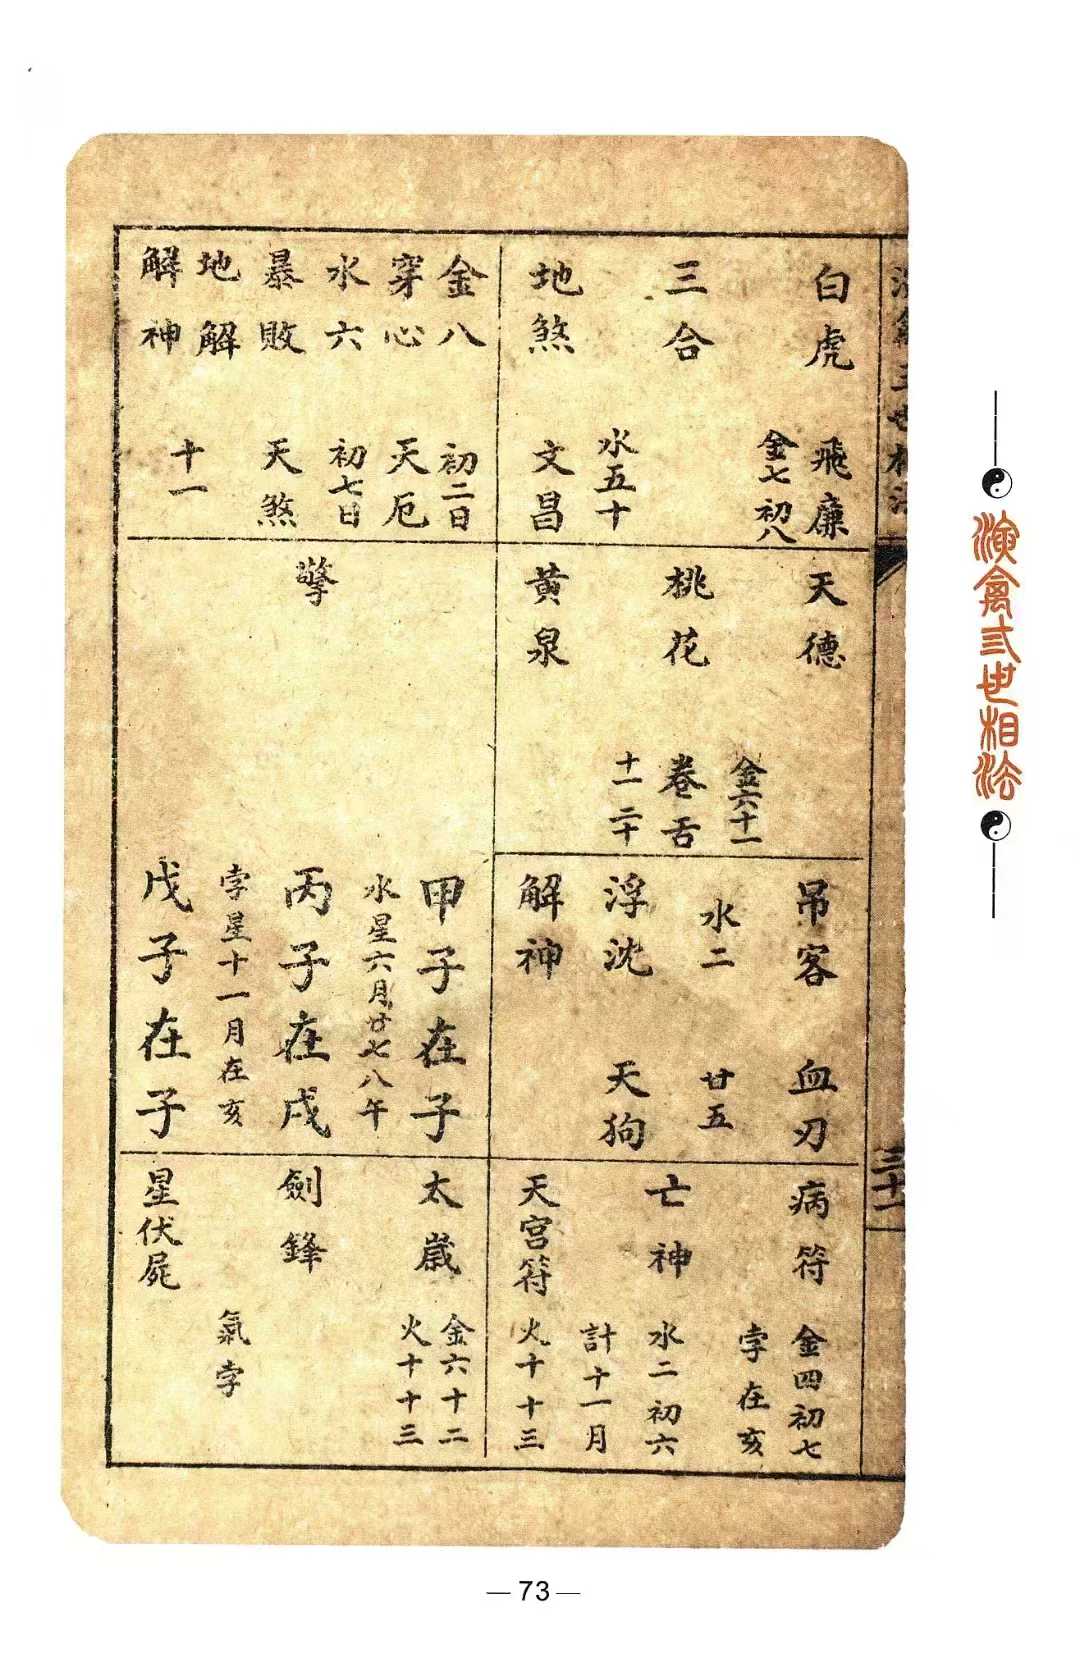 演禽三世相法
三十一
白虎 飛廉
金七初八
三合
水五十
地煞 文昌
天德
金六十一
桃花 卷舌
十一二十
黄泉
吊客 血刃
水二 廿五
浮沈 天狗
解神
病符 金四初七
孛在亥
亡神 水二初六
計十一月
天宫符 火十十三
金八 初二日
穿心 天厄
水六 初七日
暴敗 天煞
地解
十一
解神
擎
甲子在子
水星六月廿七八午
丙子在戌
孛星十一月在亥
戊子在子
太歲 金六十二
火十十三
劍鋒
氣孛
星伏屍
演禽三世相法
—73—